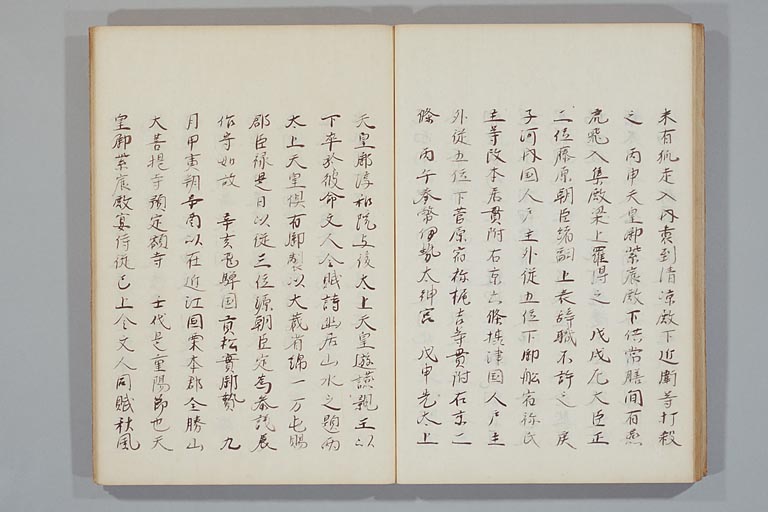 未有狐走入内裏到清凉殿下近衛等打殺
之 丙申天皇御紫宸殿下供常膳間有燕
飛入集殿梁上羅得之 戊戌左大臣正
二位藤原朝臣緒嗣上表辞職不許之 庚
子河内国人戸主外従五位下御船宿祢氏
主等改本居貫附右京六條摂津国人戸主
外従五位下菅原宿祢梶吉等貫附右京二
條 丙午奉幣伊勢太神宮 戊申先太上
天皇御淳和院与後太上天皇遊讌親王以
下卒於彼命文人令賦詩幽居山水之題両
太上天皇倶有御製以大蔵省綿一万屯賜
群臣禄是日以従三位源朝臣定為参議兵
作等如故 辛亥飛騨国貢松實御贄 九
月甲寅朔 以在近江国栗本郡金勝山
大菩提寺預定額寺 壬戌是重陽節也天
皇御紫宸殿宴侍従已上令文人同賦秋風